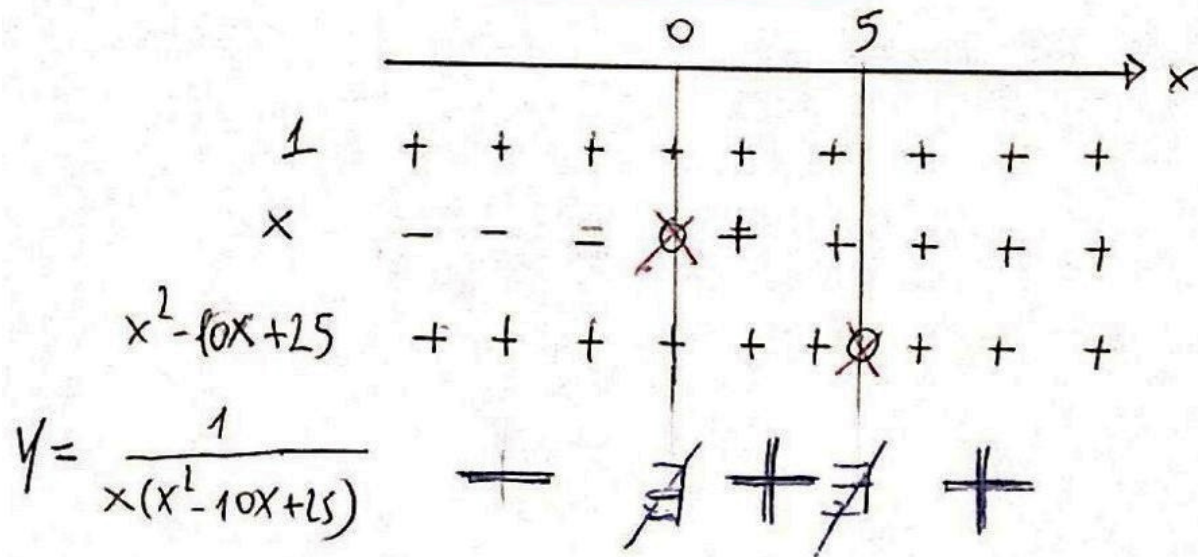 0 5
x
1 + + + + + + + + +
x - - - 0 + + + + +
x²-10x+25 + + + + + + 0 + + +
y = 1/(x(x²-10x+25)) - ∄ + ∄ +